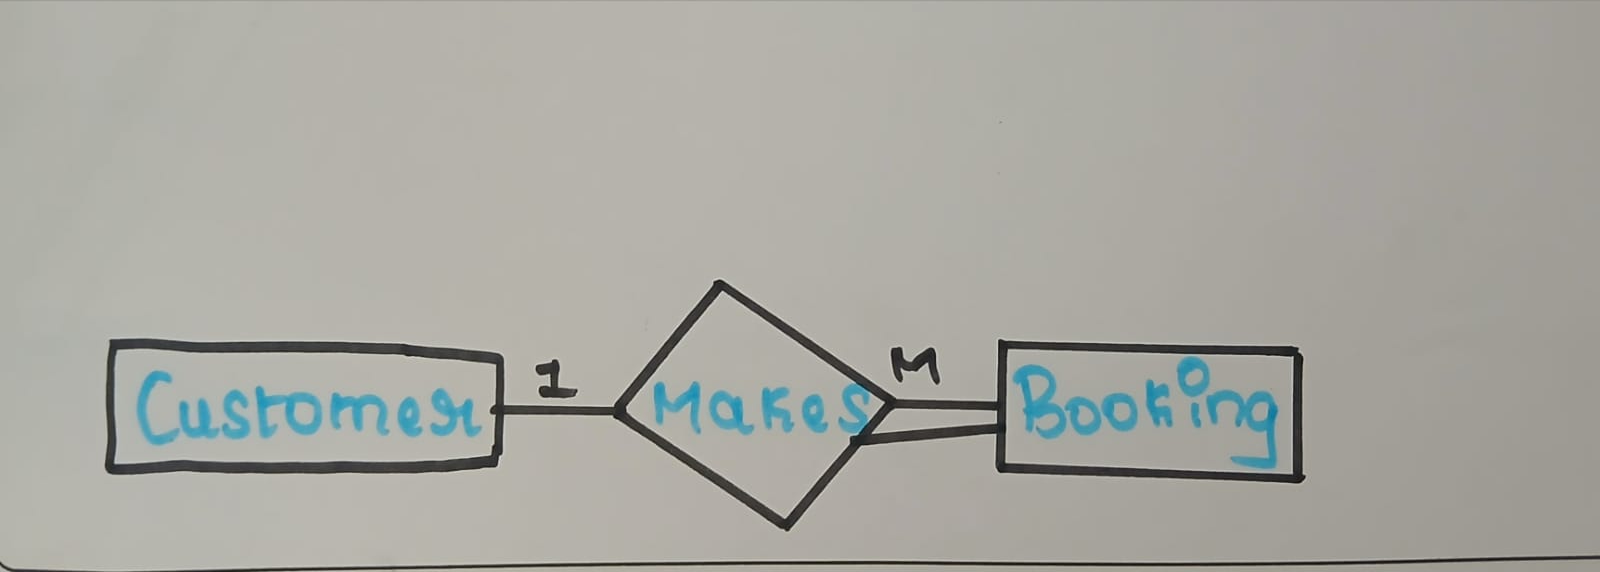 1
M
Customer
Makes
Booking